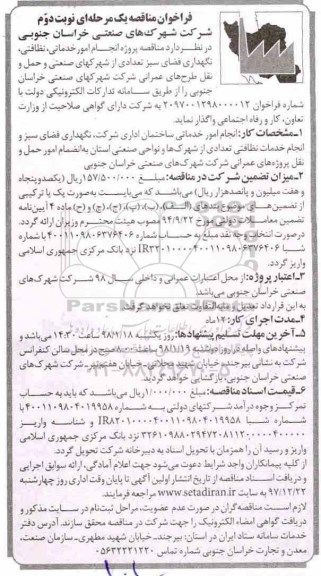 فراخوان مناقصه یک مرحله‌ای نوبت دوم
شرکت شهرک‌های صنعتی خراسان جنوبی
در نظر دارد مناقصه پروژه انجام امور خدماتی، نظافتی،
نگهداری فضای سبز تعدادی از شهرکهای صنعتی و حمل و
نقل طرح‌های عمرانی شرکت شهرکهای صنعتی خراسان
جنوبی را از طریق سامانه تدارکات الکترونیکی دولت با
شماره فراخوان ۲۰۹۷۰۰۱۲۹۸۰۰۰۰۱۲ به شرکت دارای گواهی صلاحیت از وزارت
تعاون، کار و رفاه اجتماعی واگذار نماید.
۱-مشخصات کار: انجام امور خدماتی ساختمان اداری شرکت، نگهداری فضای سبز و
انجام خدمات نظافتی تعدادی از شهرک‌ها و نواحی صنعتی استان به انضمام امور حمل و
نقل پروژه‌های عمرانی شرکت شهرک‌های صنعتی خراسان جنوبی
۲-میزان تضمین شرکت در مناقصه: مبلغ ۱۵۷/۵۰۰/۰۰۰ ریال (یکصد و پنجاه
و هفت میلیون و پانصد هزار ریال) می‌باشد که می‌بایست به صورت یک یا ترکیبی
از تضمین‌های موضوع بندهای (الف)، (ب)، (پ)، (ج)، (چ) و (ح) ماده ۴ آیین‌نامه
تضمین معاملات دولتی مورخ ۹۴/۹/۲۲ مصوب هیئت محترم وزیران ارائه گردد.
درصورت انتخاب وجه نقد مبلغ به حساب شماره ۴۰۰۱۱۰۹۸۰۶۳۷۶۴۰۶ با شماره
شبا نزد بانک مرکزی جمهوری اسلامی
واریز گردد.
۳-اعتبار پروژه: از محل اعتبارات عمرانی و داخلی سال ۹۸ شرکت شهرک‌های
صنعتی خراسان جنوبی می‌باشد
به این قرارداد تعدیل و مابه‌التفاوت تعلق نخواهد گرفت.
۴-مدت اجرای کار: ۱۲ ماه
۵-آخرین مهلت تسلیم پیشنهادها: روز یکشنبه ۹۸/۱/۱۸ ساعت ۱۴:۳۰ می‌باشد و
پیشنهادهای واصله در روز دوشنبه ۹۸/۱/۱۹ ساعت ۸:۰۰ صبح در محل سالن کنفرانس
شرکت به نشانی بیرجند، خیابان شهید محلاتی، خیابان هفدهم، شرکت شهرک‌های
صنعتی خراسان جنوبی، بازگشایی خواهد گردید.
۶-قیمت اسناد مناقصه: مبلغ ۱/۰۰۰/۰۰۰ ریال می‌باشد که باید به حساب
تمرکز وجوه درآمد شرکتهای دولتی به شماره ۴۰۰۱۱۰۹۸۰۴۰۱۹۹۵۸ با
شماره شبا و شناسه واریز
نزد بانک مرکزی جمهوری اسلامی
واریز و رسید آن را همزمان با تحویل اسناد به دبیرخانه شرکت تحویل گردد.
از کلیه پیمانکاران واجد شرایط دعوت می‌شود جهت اعلام آمادگی، ارائه سوابق اجرایی
و دریافت اسناد مناقصه از تاریخ انتشار اولین آگهی تا پایان وقت اداری روز چهارشنبه
۹۷/۱۲/۲۲ به سایت www.setadiran.ir مراجعه فرمایند.
لازم است مناقصه گران در صورت عدم عضویت، مراحل ثبت نام در سایت مذکور و
دریافت گواهی امضاء الکترونیک را جهت شرکت در مناقصه محقق سازند. آدرس دفتر
خدمات سامانه ستاد ایران در استان: بیرجند- خیابان شهید مطهری- سازمان صنعت،
معدن و تجارت خراسان جنوبی شماره تماس ۰۵۶۳۲۲۲۱۲۲۰